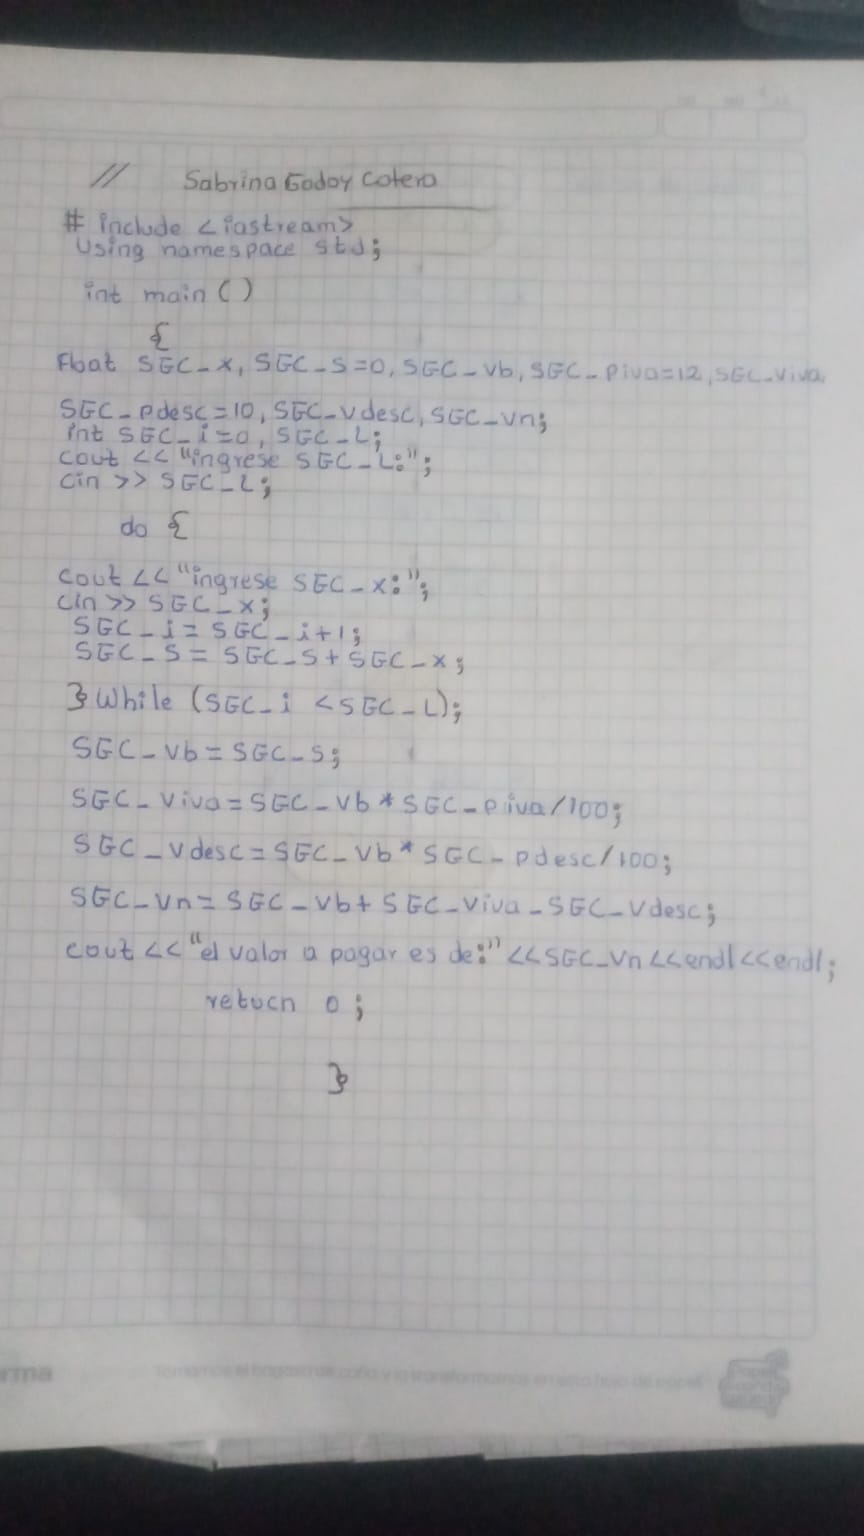 // Sabrina Godoy Cotero
# include <iastream>
Using namespace std;
int main ()
{
Float SGC_x, SGC_S=0, SGC_vb, SGC_piva=12, SGC_viva,
SGC_pdesc=10, SGC_vdesc, SGC_vn;
int SGC_i=0, SGC_L;
cout << "ingrese SGC_L:";
cin >> SGC_L;
do {
cout << "ingrese SGC_x:";
cin >> SGC_x;
SGC_i = SGC_i+1;
SGC_S = SGC_S + SGC_x;
} While (SGC_i < SGC_L);
SGC_vb = SGC_S;
SGC_viva = SGC_vb * SGC_piva/100;
SGC_vdesc = SGC_vb * SGC_pdesc/100;
SGC_vn = SGC_vb + SGC_viva - SGC_vdesc;
cout << "el valor a pagar es de:" << SGC_vn << endl << endl;
return 0;
}
rma
Tomamos el bagazo de caña y la transformamos en esta hoja de papel